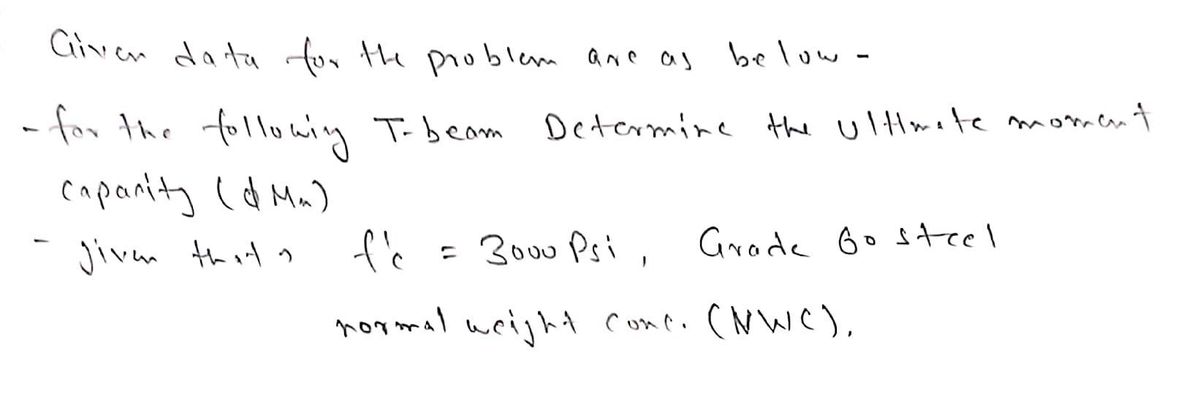 Given data for the problem are as below -
- for the following T-beam Determine the Ultimate moment
capacity (ϕ Mn)
- given that, f'c = 3000 Psi, Grade 60 steel
normal weight conc. (NWC).